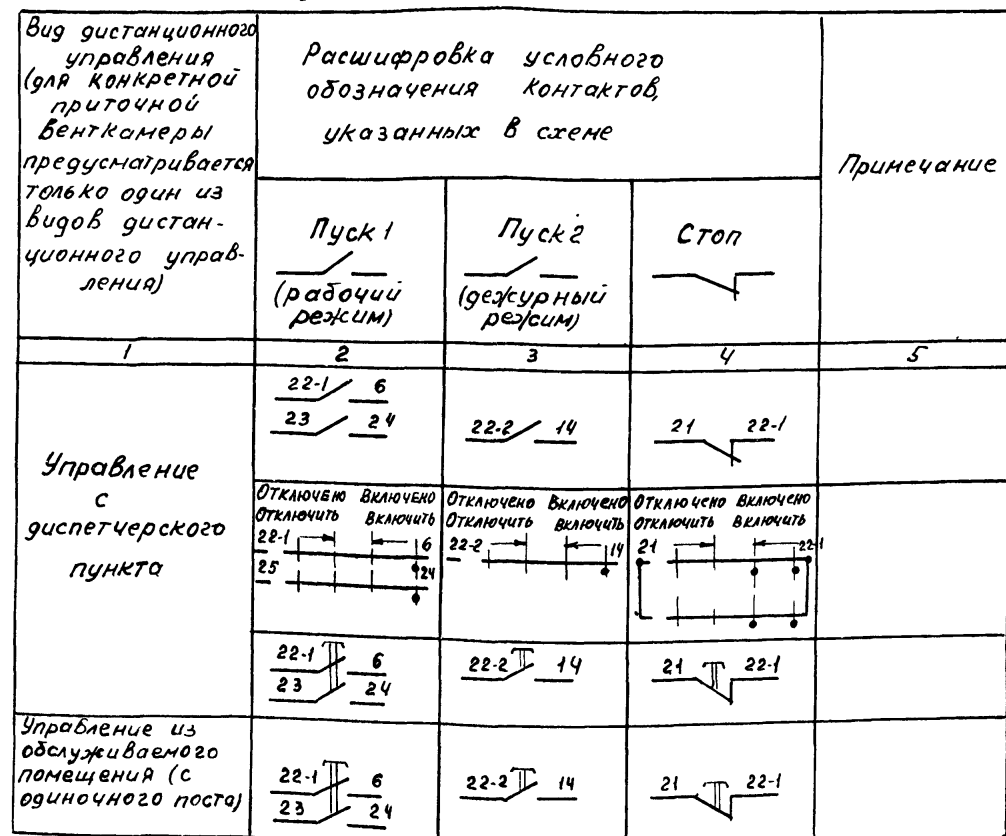 Вид дистанционного
управления
(для конкретной
приточной
венткамеры
предусматривается
только один из
видов дистан-
ционного управ-
ления)
Расшифровка условного
обозначения контактов,
указанных в схеме
Примечание
Пуск 1
(рабочий
режим)
Пуск 2
(дежурный
режим)
Стоп
1 2 3 4 5
Управление
с
диспетчерского
пункта
22-1 6
23 24
22-2 14
21 22-1
Отключено Включено
Отключить Включить
22-1 6
25 24
Отключено Включено
Отключить Включить
22-2 14
Отключено Включено
Отключить Включить
21 22-1
22-1 6
23 24
22-2 14
21 22-1
Управление из
обслуживаемого
помещения (с
одиночного поста)
22-1 6
23 24
22-2 14
21 22-1